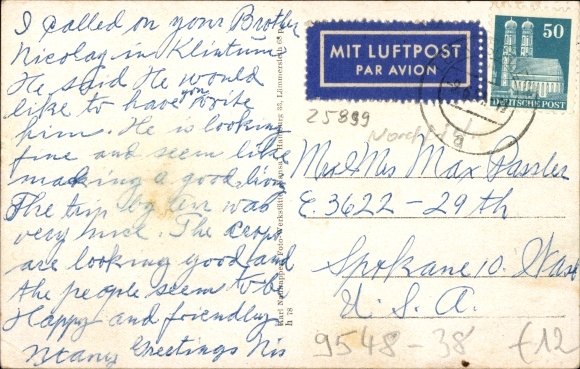 I called on your Brother
Nicolay in Klintum
He said He would
like to have you write
him. He is looking
fine and seem like
making a good living
The trip by here was
very nice. The crops
are looking good and
the people seem to be
Happy and friendly
Many Greetings Nis
h 78
MIT LUFTPOST
PAR AVION
50
DEUTSCHE POST
25899
Mr & Mrs Max Passler
E. 3622-29th
Spokane 10. Wash
U. S. A.
9548-38
€12